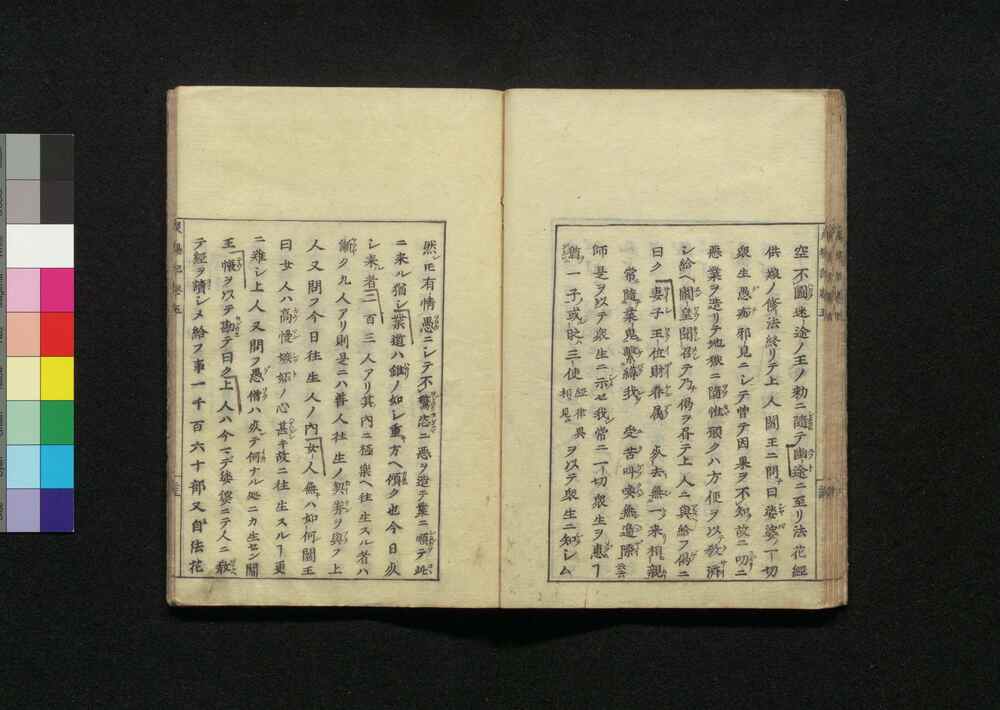 空不圖迷途ノ王ノ勅ニ隨テ幽途ニ至リ法花經
供娘ノ修法終リテ上人閻王ニ問テ曰娑婆ノ一切
衆生愚痴邪見ニシテ曽テ因果ヲ不知故ニ叨ニ
惡業ヲ造リテ地獄ニ隨性願クハ方便ヲ以テ教済
シ給ヘ閻皇聞召テ乃偈ヲ呑テ上人ニ與給フ偈ニ
曰ク妻子王位財眷属 死去無一来相親
常隨業鬼繫縛我 受苦叫喚無邉際
師是ヲ以テ衆生ニ示せ我常ニ一切衆生ヲ惠ー
猶一子或時三使經律異相見ヲ以テ衆生ニ知レム
然ルニ有情愚ニシテ不驚恣ニ悪ヲ造テ業ニ順テ此
ニ来ル猶シ業道ハ錐ノ如レ重方ヘ傾ク也今日灰
シ来者二百三人アリ其内ニ極楽ヘ往生スル者ハ
漸ク九人アリ則是ニハ善人社生ノ契券ヲ與フ上
人又問フ今日往生人ノ内女人無ハ如何閻王
曰女人ハ高慢嫉妬ノ心甚キ故ニ往生スルー更
ニ難シ上人又問フ愚僧ハ灰テ何ナル処ニカ生セン閻
王一帳ヲ以テ勘テ曰之上人ハ今マデ娑婆ニテ人ニ教
テ経ヲ讀シメ給フ事一千百六十部又自法花